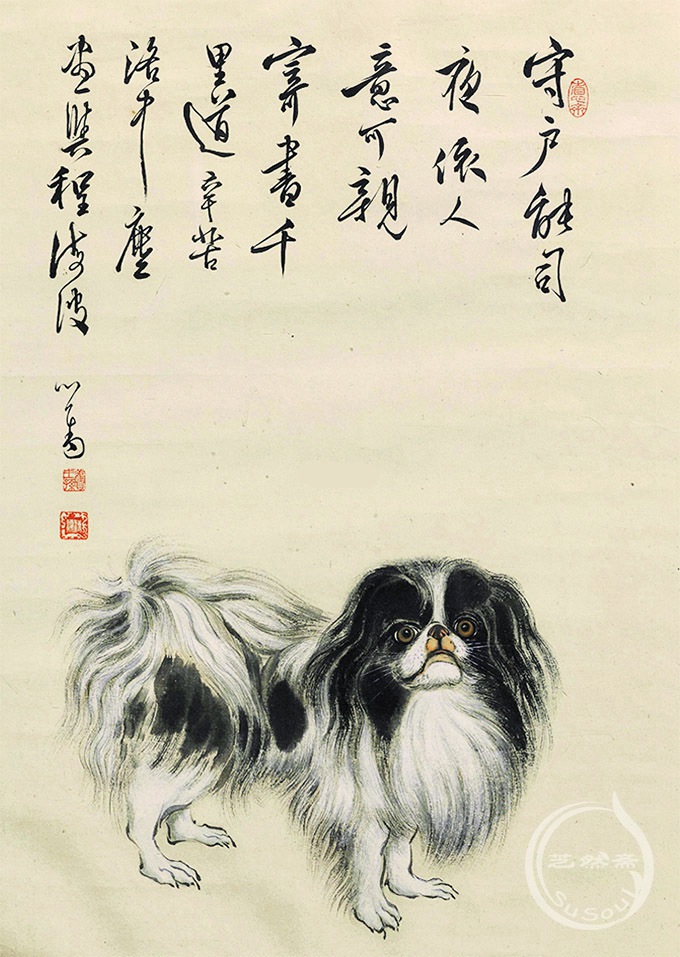 守戶能司
夜依人
意可親
寄書千
里道辛苦
洛中塵
畫與程波
心畬
然斋
SuSoul